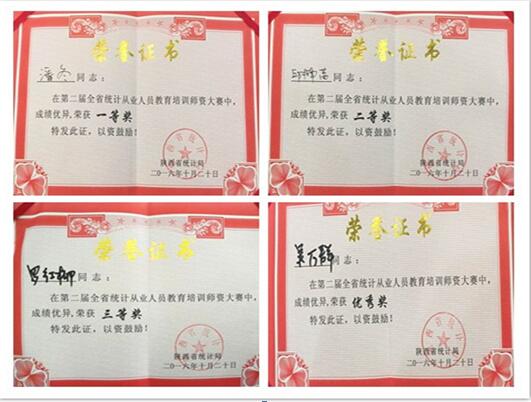 荣誉证书
潘冬 同志:
在第二届全省统计从业人员教育培训师资大赛中,
成绩优异,荣获 一等奖
特发此证,以资鼓励!
陕西省统计局
二〇一六年十月二十日
荣誉证书
同志:
在第二届全省统计从业人员教育培训师资大赛中,
成绩优异,荣获 二等奖
特发此证,以资鼓励!
陕西省统计局
二〇一六年十月二十日
荣誉证书
罗红柳 同志:
在第二届全省统计从业人员教育培训师资大赛中,
成绩优异,荣获 三等奖
特发此证,以资鼓励!
陕西省统计局
二〇一六年十月二十日
荣誉证书
吴万群 同志:
在第二届全省统计从业人员教育培训师资大赛中,
成绩优异,荣获 优秀奖
特发此证,以资鼓励!
陕西省统计局
二〇一六年十月二十日